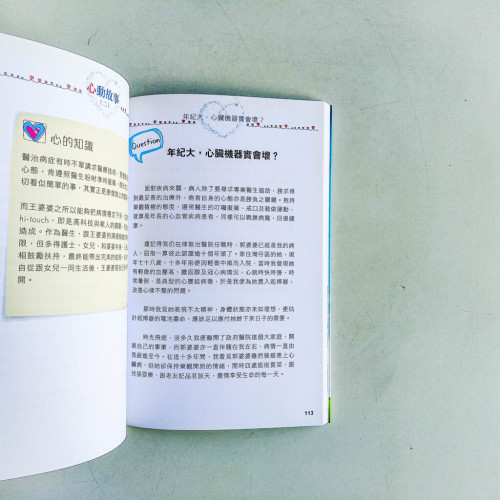 心動故事
(二)
心的知識
醫治病症有時不單講求醫療技術，
心態，肯遵照醫生吩咐準時服藥，
切看似簡單的事，其實正是
而王婆婆之所以能夠把病情穩定下來，
hi-touch，即是高科技與
造成。作為醫生，跟王婆婆的
限，但多得護士、女兒，和婆婆
相鼓勵扶持，最終能帶出完美的
自從跟女兒一同生活後，王婆婆
開。
年紀大，心臟機器實會壞？
Question
年紀大，心臟機器實會壞？
面對疾病來襲，病人除了要尋求專業醫生協助，務求得
到最妥善的治療外，病者自身的心態亦是勝負之關鍵。抱持
樂觀積極的態度，遵照醫生的叮囑服藥、戒口及勤做運動，
就算是年長的心血管疾病患者，同樣可以戰勝病魔，回復健
康。
還記得我仍在律敦治醫院任職時，郭婆婆已經是我的病
人，回指一算彼此認識逾十個年頭了。家住灣仔區的她，現
年七十八歲，十多年前便因輕微中風而入院，當時我發現她
有較微的血壓高、膽固醇及冠心病情況，心跳時快時慢，時
常暈倒，是典型的心竇結病徵，於是我便為她置入起搏器，
改善心律不整的問題。
那時我見她表現不太精神，身體狀態亦未如理想，便估
計起搏器的電池壽命，應該足以應付她餘下來日子的需要。
時光飛逝，沒多久我便離開了政府醫院這個大家庭，開
展自己的事業，而郭婆婆亦一直伴隨在我左右，病情一直由
我跟進至今。在這十多年間，我看見郭婆婆雖然曾經患上心
臟病，但她卻保持樂觀開朗的情緒，閒時四處逛街買菜，跟
兒孫耍樂，跟老友記品茗談天，盡情享受生命的每一天。
113